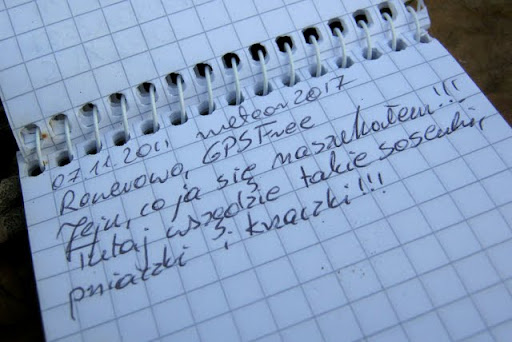 07 11 2011 meteor2017
Rowerowo, GPSFree
Jeju, co ja się naszukałem!!!
Tutaj wszędzie takie sosenki,
pniaczki i krzaczki!!!